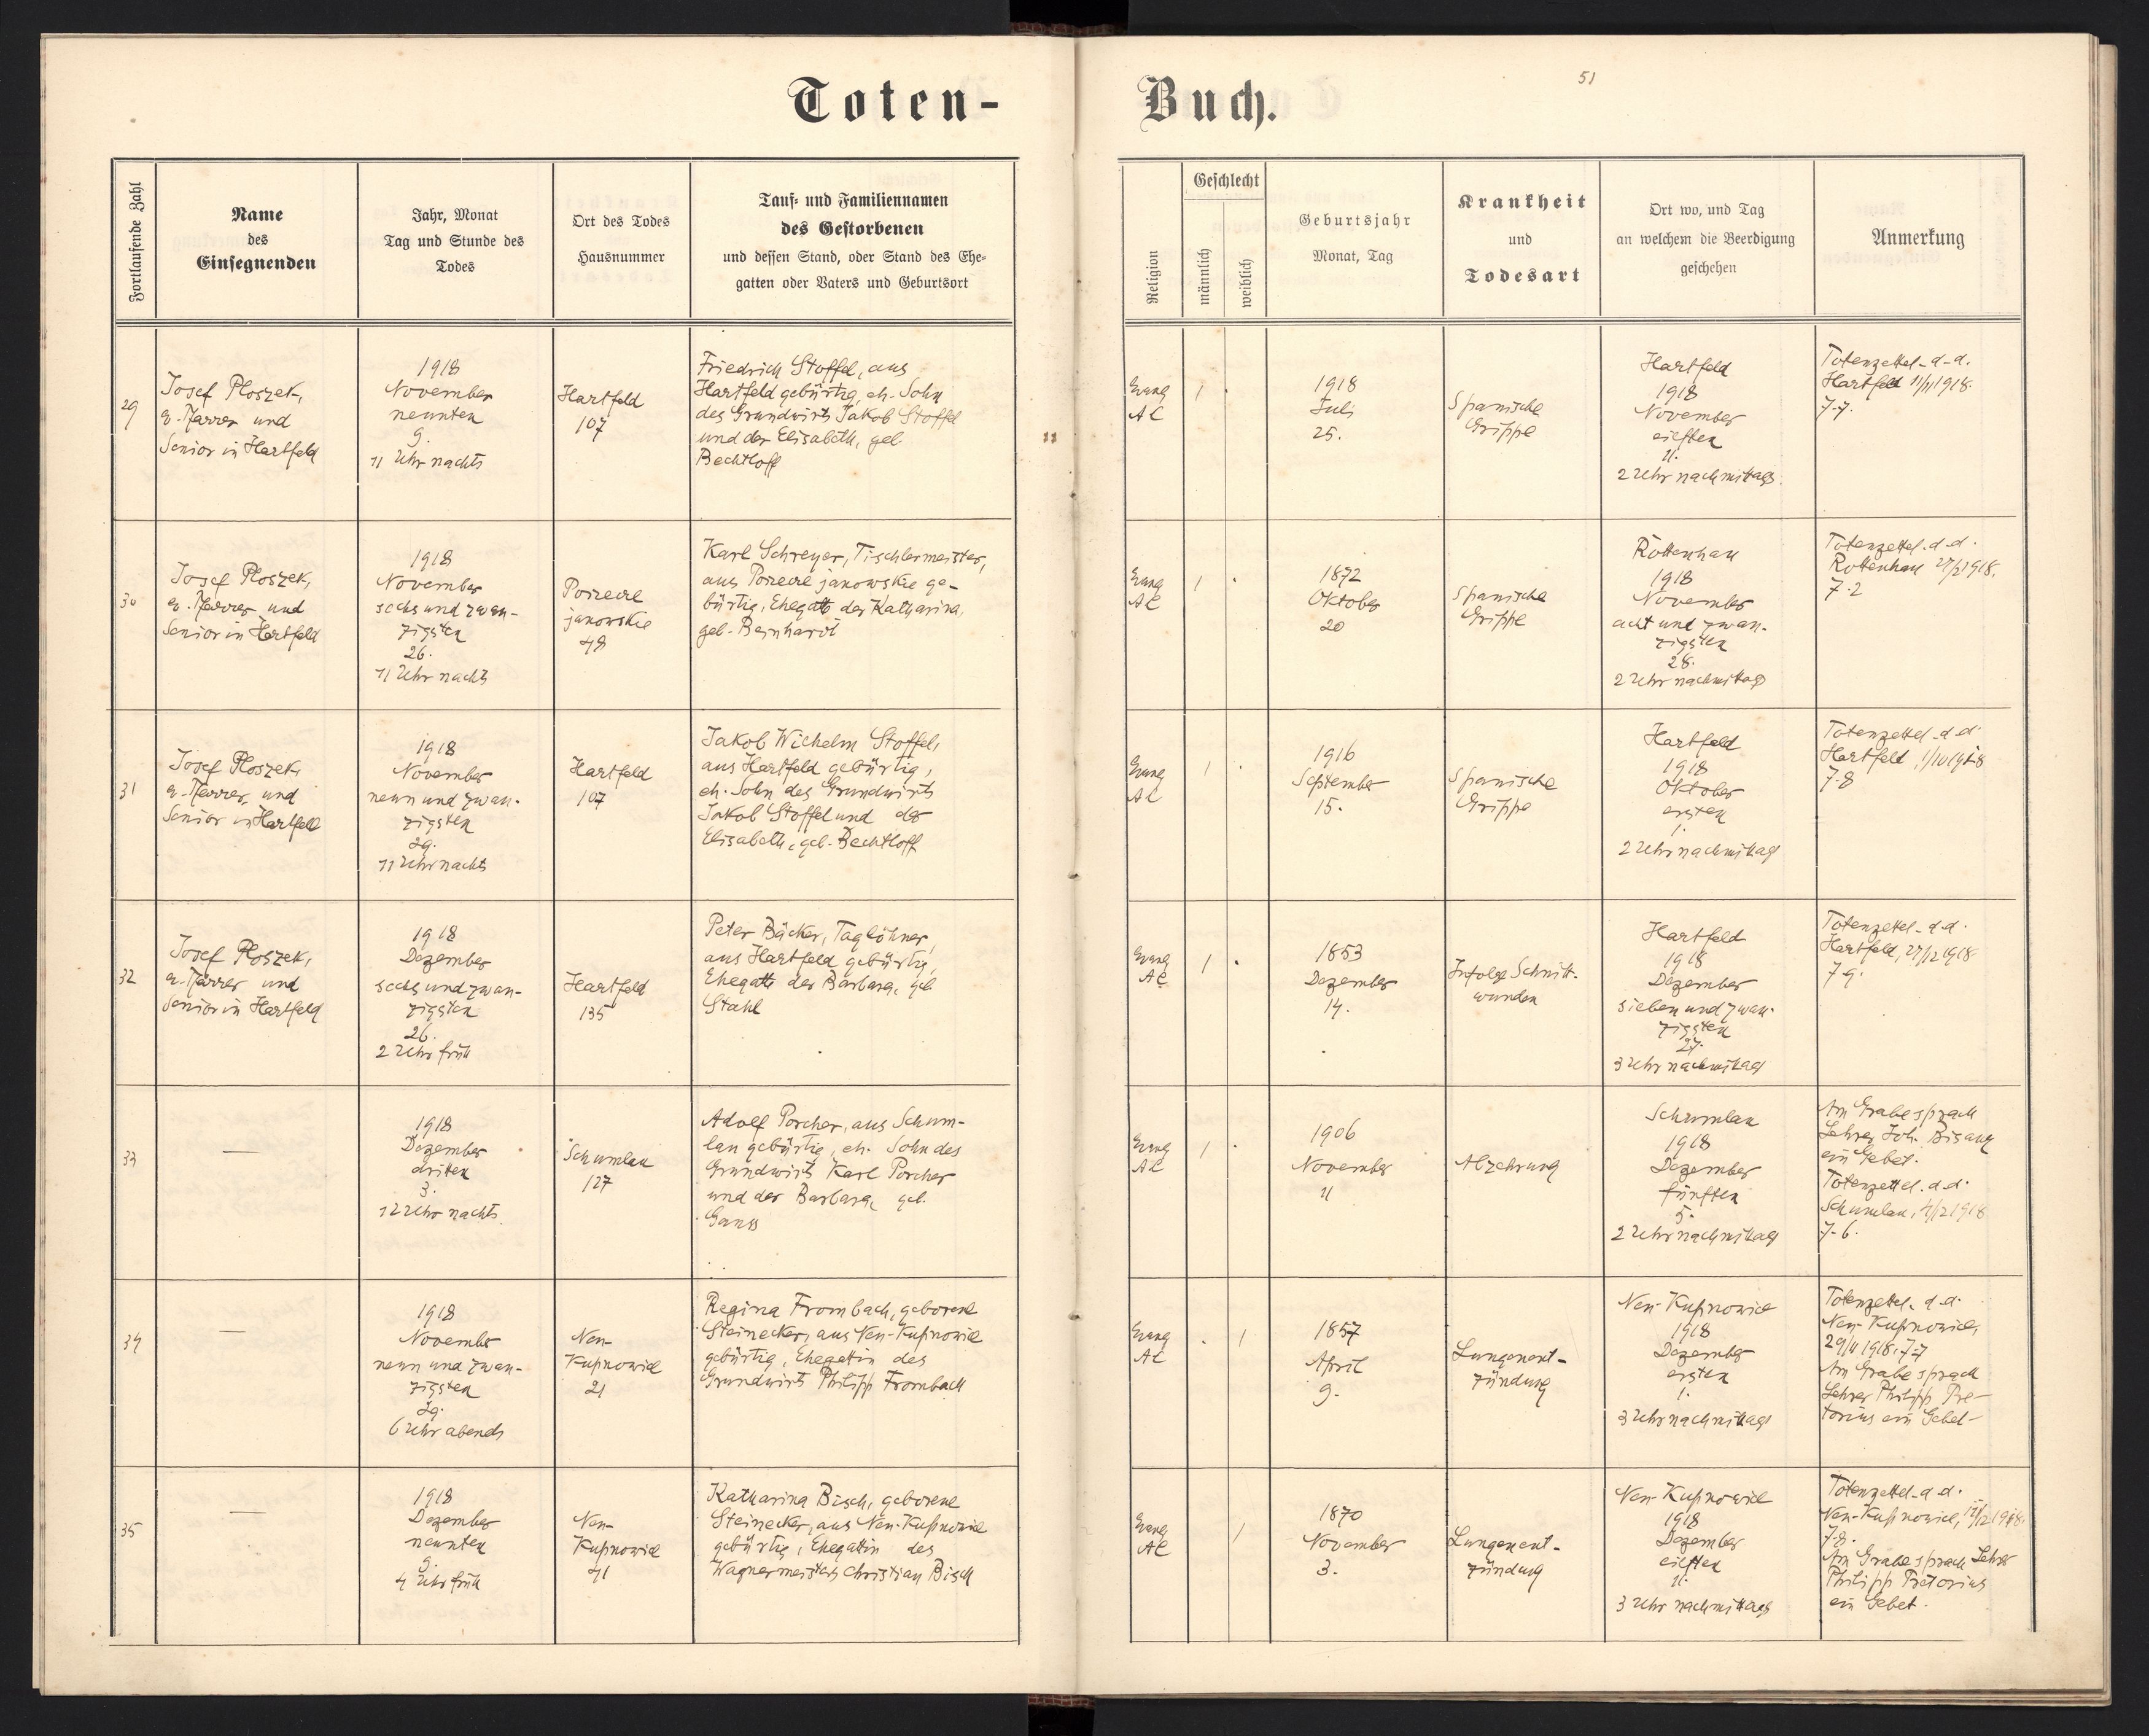 Toten-
Buch.
51
Fortlaufende Zahl
Name
des
Einsegnenden
Jahr, Monat
Tag und Stunde des
Todes
Ort des Todes
Hausnummer
Tauf- und Familiennamen
des Gestorbenen
und dessen Stand, oder Stand des Ehe-
gatten oder Vaters und Geburtsort
Religion
Geschlecht
männlich
weiblich
Geburtsjahr
Monat, Tag
Krankheit
und
Todesart
Ort wo, und Tag
an welchem die Beerdigung
geschehen
Anmerkung
29
Josef Ploszek,
ev. Pfarrer und
Senior in Hartfeld
1918
November
neunten
9.
11 Uhr nachts
Hartfeld
107
Friedrich Stoffel, aus
Hartfeld gebürtig, eh. Sohn
des Grundwirts Jakob Stoffel
und der Elisabeth, geb.
Bechtloff
Evang
AC
1
1918
Juli
25.
Spanische
Grippe
Hartfeld
1918
November
eilften
11.
2 Uhr nachmittags.
Totenzettel d. d.
Hartfeld 11/11 1918.
7-7.
30
Josef Ploszek,
ev. Pfarrer und
Senior in Hartfeld
1918
November
sechs und zwan-
zigsten
26.
11 Uhr nachts
Porzecze
janowskie
48
Karl Schreyer, Tischlermeister,
aus Porzecze janowskie ge-
bürtig, Ehegatte der Katharina,
geb. Beinhardt
Evang
AC
1
1872
Oktober
20
Spanische
Grippe
Rottenhan
1918
November
acht und zwan-
zigsten
28.
2 Uhr nachmittag
Totenzettel. d. d.
Rottenhan
7-2
31
Josef Ploszek,
ev. Pfarrer, und
Senior in Hartfeld
1918
November
neun und zwan-
zigsten
29.
11 Uhr nachts
Hartfeld
107
Jakob Wilhelm Stoffel,
aus Hartfeld gebürtig,
eh. Sohn des Grundwirts
Jakob Stoffel und der
Elisabeth, geb. Bechtloff
Evang
AC
1
1916
September
15.
Spanische
Grippe
Hartfeld
1918
Oktober
ersten
1.
2 Uhr nachmittag
Totenzettel d. d.
Hartfeld 1/10 1918
7-8
32
Josef Ploszek,
ev. Pfarrer und
Senior in Hartfeld
1918
Dezember
sechs und zwan-
zigsten
26.
2 Uhr früh
Hartfeld
135
Peter Bäcker, Taglöhner,
aus Hartfeld gebürtig,
Ehegatte der Barbara, geb
Stahl
Evang
AC
1
1853
Dezember
14.
Infolge Schnitt-
wunden
Hartfeld
1918
Dezember
sieben und zwan-
zigsten
27.
3 Uhr nachmittag
Totenzettel d. d.
Hartfeld, 27/12 1918
7-9.
33
—
1918
Dezember
driten
3.
12 Uhr nachts
Schumlau
127
Adolf Porcher, aus Schum-
lau gebürtig, eh. Sohn des
Grundwirts Karl Porcher
und der Barbara, geb.
Ganss
Evang
AC
1
1906
November
11
Abzehrung
Schumlau
1918
Dezember
fünften
5.
2 Uhr nachmittag
Am Grabe sprach
Lehrer Joh. Bisanz
ein Gebet.
Totenzettel. d. d.
Schumlau, 4/12 1918
7-6.
34
—
1918
November
neun und zwan-
zigsten
29.
6 Uhr abends
Neu-
Kupnowice
21
Regina Frombach, geborene
Steinecker, aus Neu-Kupnowice
gebürtig, Ehegattin des
Grundwirts Philipp Frombach
Evang
AC
1
1857
April
9.
Lungenent-
zündung
Neu-Kupnowice
1918
Dezember
ersten
1.
3 Uhr nachmittags
Totenzettel. d. d.
Neu-Kupnowice,
29/11 1918. 7-7
Am Grabe sprach
Lehrer Philipp Pre-
torius ein Gebet-
35
—
1918
Dezember
neunten
9.
4 Uhr früh
Neu-
Kupnowice
41
Katharina Bisch, geborene
Steinecker, aus Neu-Kupnowice
gebürtig, Ehegattin des
Wagnermeisters Christian Bisch
Evang
AC
1
1870
November
3.
Lungenent-
zündung
Neu-Kupnowice
1918
Dezember
eilften
11.
3 Uhr nachmittags
Totenzettel d. d.
Neu-Kupnowice,
7-8.
Am Grabe sprach Lehrer
Philipp Pretorius
ein Gebet.